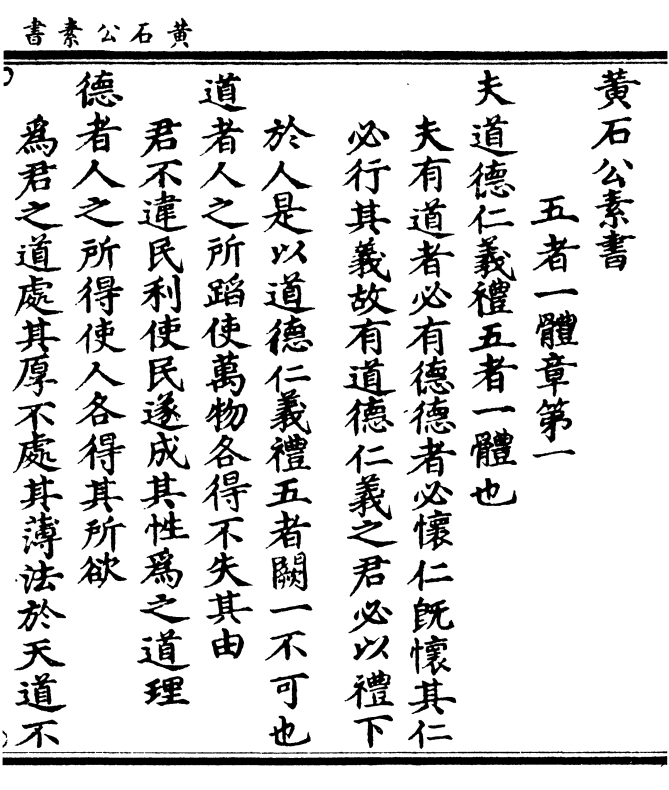 黄石公素書
黃石公素書
五者一體章第一
夫道德仁義禮五者一體也
夫有道者必有德德者必懷仁既懷其仁
必行其義故有道德仁義之君必以禮下
於人是以道德仁義禮五者闕一不可也
道者人之所蹈使萬物各得不失其由
君不違民利使民遂成其性爲之道理
德者人之所得使人各得其所欲
爲君之道處其厚不處其薄法於天道不